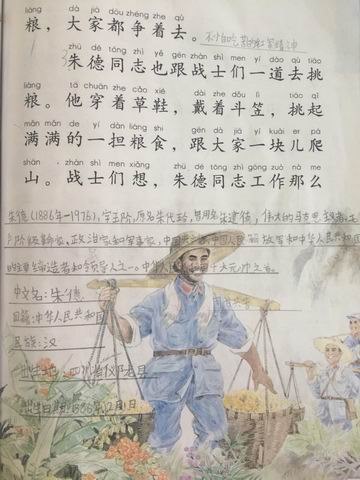 liáng dà jiā dōu zhēng zhe qù
粮，大家都争着去。
zhū dé tóng zhì yě gēn zhàn shì men yí dào qù tiāo
朱德同志也跟战士们一道去挑
liáng tā chuān zhe cǎo xié dài zhe dǒu lì tiāo qǐ
粮。他穿着草鞋，戴着斗笠，挑起
mǎn mǎn de yí dàn liáng shi gēn dà jiā yí kuài er pá
满满的一担粮食，跟大家一块儿爬
shān zhàn shì men xiǎng zhū dé tóng zhì gōng zuò nà me
山。战士们想，朱德同志工作那么
朱德(1886年-1976)，字玉阶，原名朱代珍，曾用名朱建德，伟大的马克思
产阶级革命家，政治家和军事家，中国 中国人民解放军和中华人民共和国
中华人 十大元帅之首。
中文名：朱德
国籍：中华人民共和国
民族：汉
出生地：四川省仪陇县
出生日期：1886年12月1日